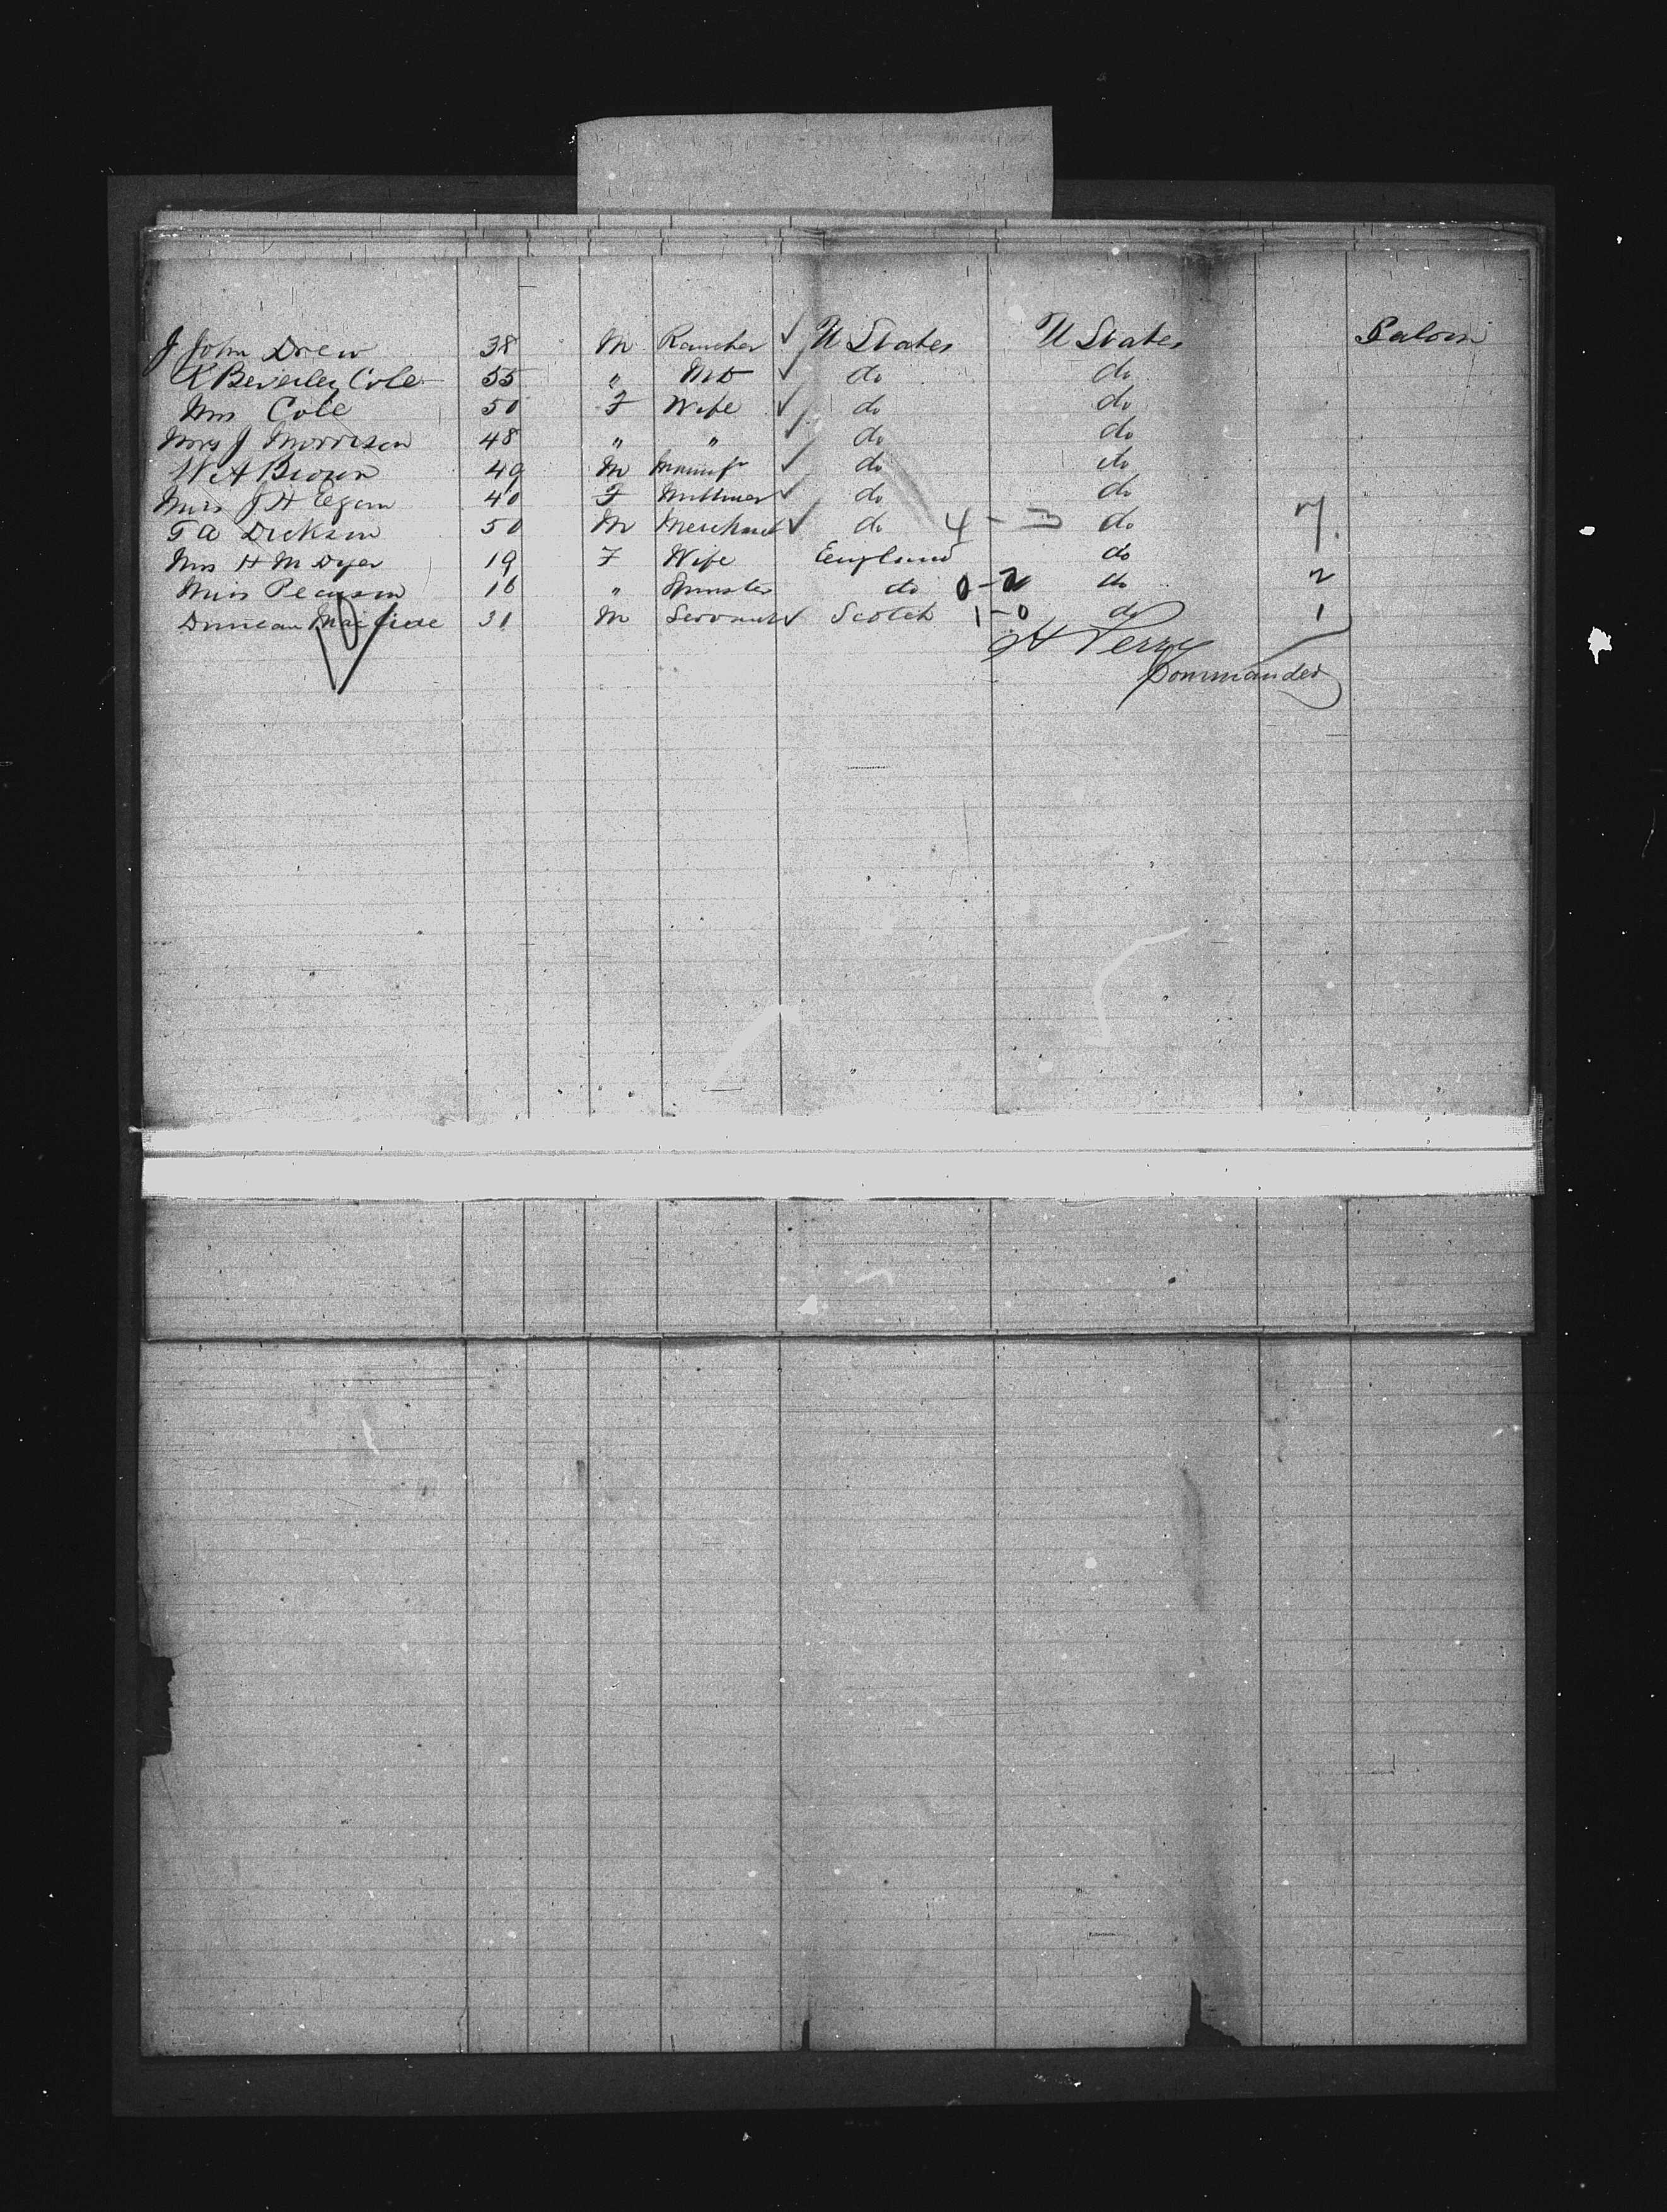 J John Drew 38 M Rancher ✓ U States U States Saloon
R Beverley Cole 55 " MD ✓ do do
Mrs Cole 50 F Wife ✓ do do
Mrs J Morrison 48 " " ✓ do do
W A Brown 49 M Manufr ✓ do do
Miss J H Egan 40 F Milliner ✓ do do
T A Dickson 50 M Merchant ✓ do 4 - 3 do 7.
Mrs H M Dyer 19 F Wife England do
Miss Pearson 16 " Spinster do 0-2 do 2
Duncan 31 M Servant ✓ Scotch 1-0 do 1
H Perry
Commander